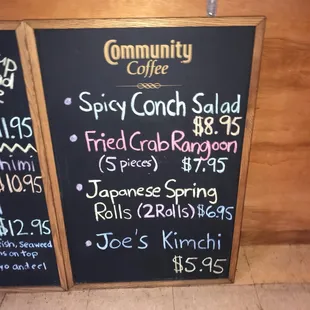 11.95
$10.95
$12.95
Community
Coffee
Spicy Conch Salad
$8.95
Fried Crab Rangoon
(5 pieces) $7.95
Japanese Spring
Rolls (2 Rolls) $6.95
Joe's Kimchi
$5.95
seaweed
on top
and eel